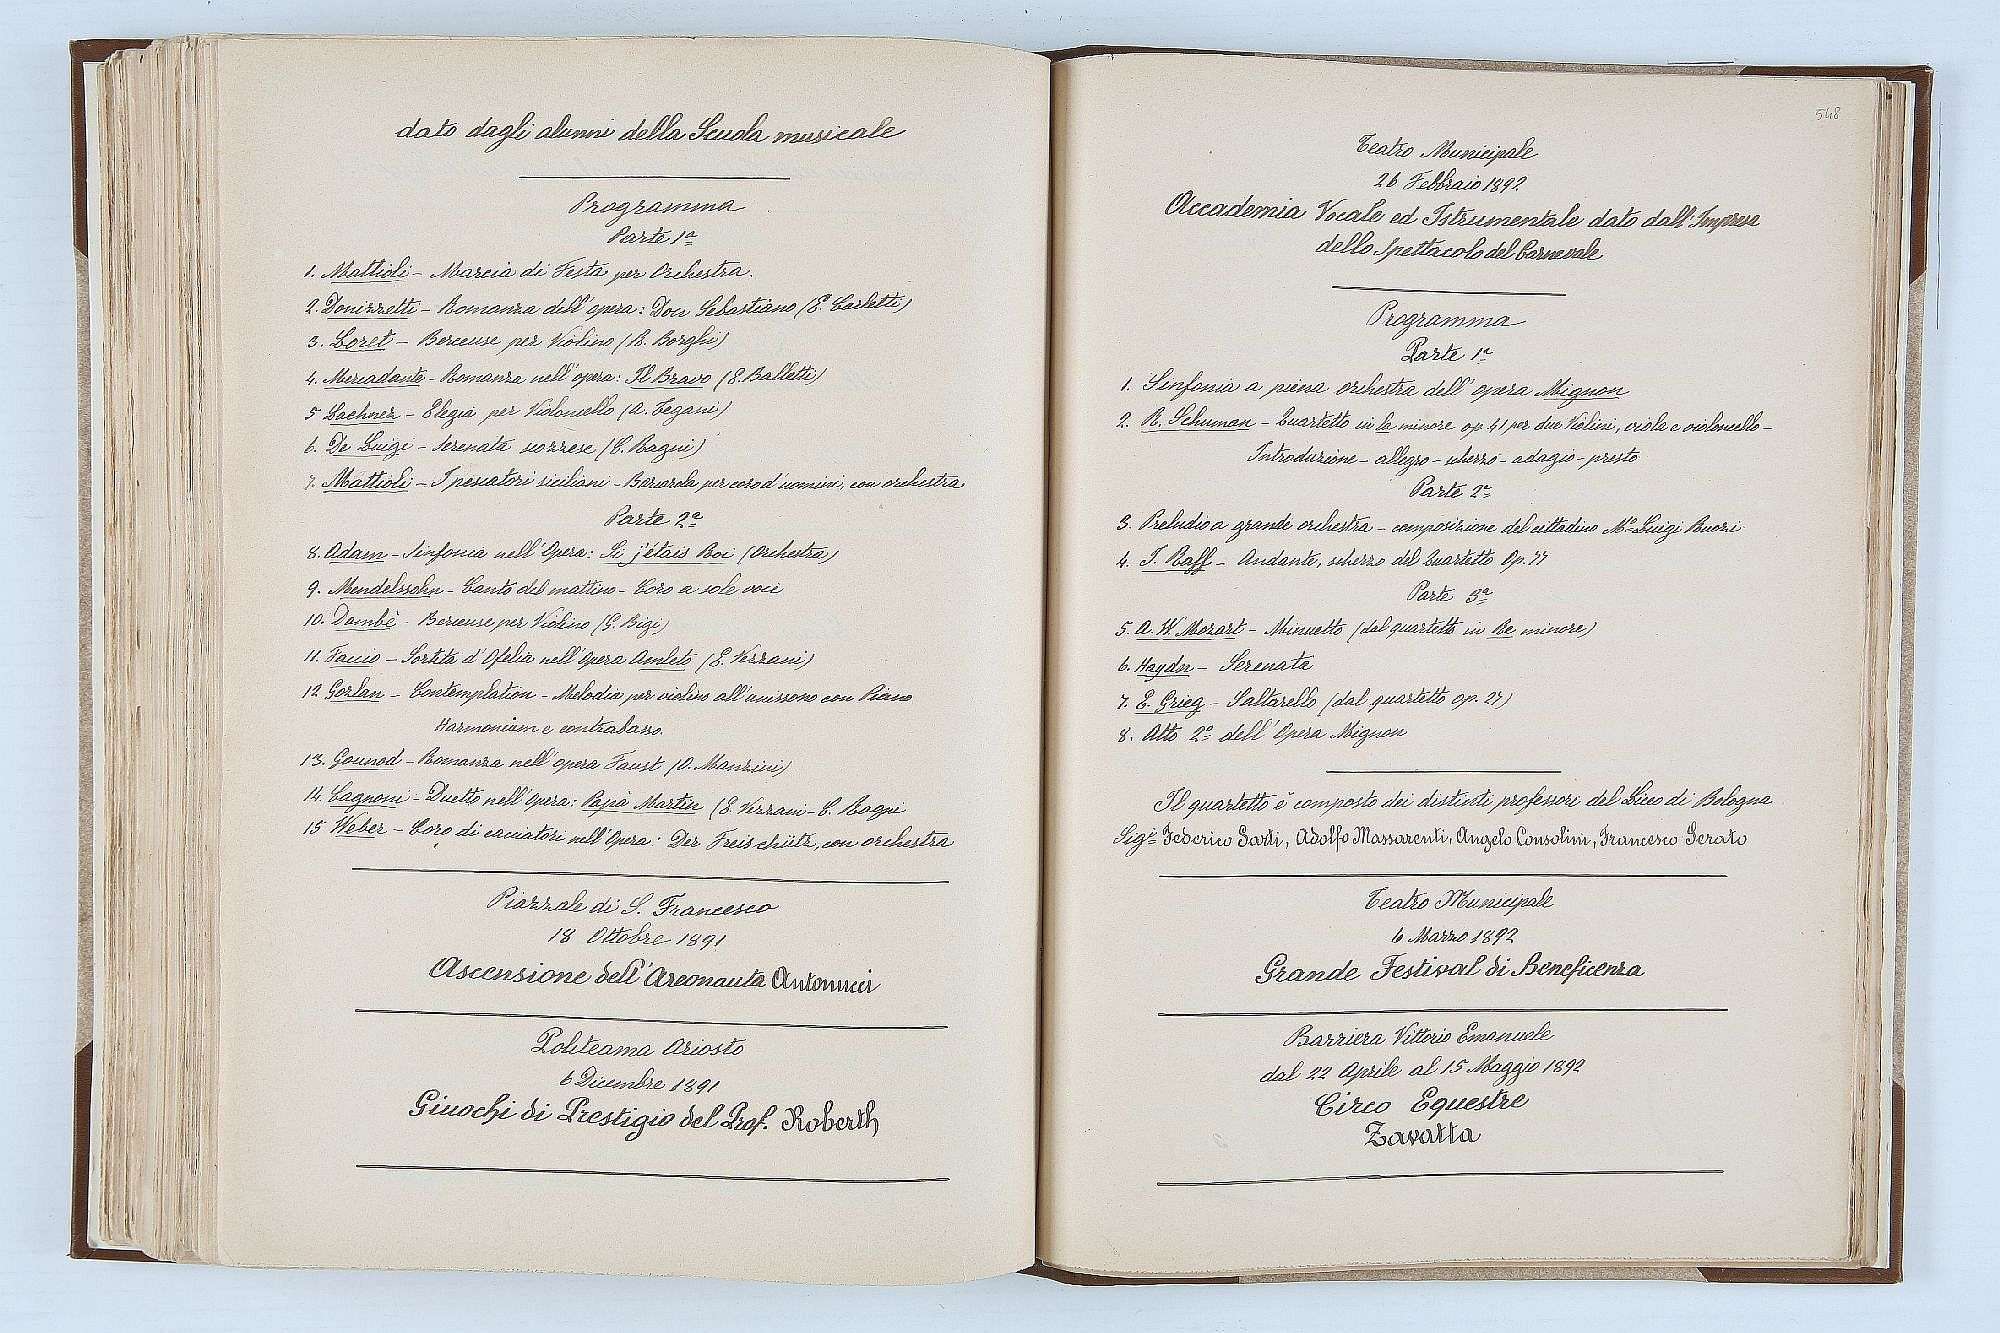 dato dagli alunni della Scuola musicale
Programma
Parte 1ª
1. Mattioli - Marcia di Festa per Orchestra.
2. Donizzetti - Romanza dell'opera: Don Sebastiano (E. Carletti)
3. Loret - Berceuse per Violino (R. Borghi)
4. Mercadante - Romanza nell'opera: Il Bravo (E. Balletti)
5 Lachner - Elegia per Violoncello (A. Tegani)
6. De Luigi - Serenata scozzese (C. Bagni)
7. Mattioli - I pescatori siciliani - Barcarola per coro d'uomini, con orchestra
Parte 2ª
8. Adam - Sinfonia nell'Opera: Si j'étais Roi (Orchestra)
9. Mendelssohn - Canto del mattino - Coro a sole voci
10. Dambè - Berceuse per Violino (G. Bigi)
11. Faccio - Sortita d'Ofelia nell'Opera Amleto (E. Vezzani)
12 Gorlan - Contemplation - Melodia per violino all'unissono con Piano
Harmonium e contrabasso.
13. Gounod - Romanza nell'opera Faust (O. Manzini)
14. Cagnoni - Duetto nell'Opera: Papà Martin (E. Vezzani - C. Bagni
15 Weber - Coro di cacciatori nell'Opera: Der Freischütz, con orchestra
Piazzale di S. Francesco
18 Ottobre 1891
Ascensione dell'Areonauta Antonucci
Politeama Ariosto
6 Dicembre 1891
Giuochi di Prestigio del Prof. Roberth
548
Teatro Municipale
26 Febbraio 1892
Accademia Vocale ed Istrumentale dato dall'Impresa
dello Spettacolo del Carnevale
Programma
Parte 1ª
1. Sinfonia a piena orchestra dell'opera Mignon
2. R. Schuman - Quartetto in la minore op. 41 per due Violini, viola e violoncello -
Introduzione - allegro - scherzo - adagio - presto
Parte 2ª
3. Preludio a grande orchestra - composizione del cittadino Mº Luigi Buozi
4. J. Raff - Andante, scherzo del Quartetto Op. 77
Parte 3ª
5. A. W. Mozart - Minuetto (dal quartetto in Re minore)
6. Haydn - Serenata
7. E. Grieg - Saltarello (dal quartetto op. 27)
8. Atto 2º dell'Opera Mignon
Il quartetto è composto dei distinti professori del Liceo di Bologna
Sigⁱ Federico Sarti, Adolfo Massarenti, Angelo Consolini, Francesco Serato
Teatro Municipale
6 Marzo 1892
Grande Festival di Beneficenza
Barriera Vittorio Emanuele
dal 22 Aprile al 15 Maggio 1892
Circo Equestre
Zavatta